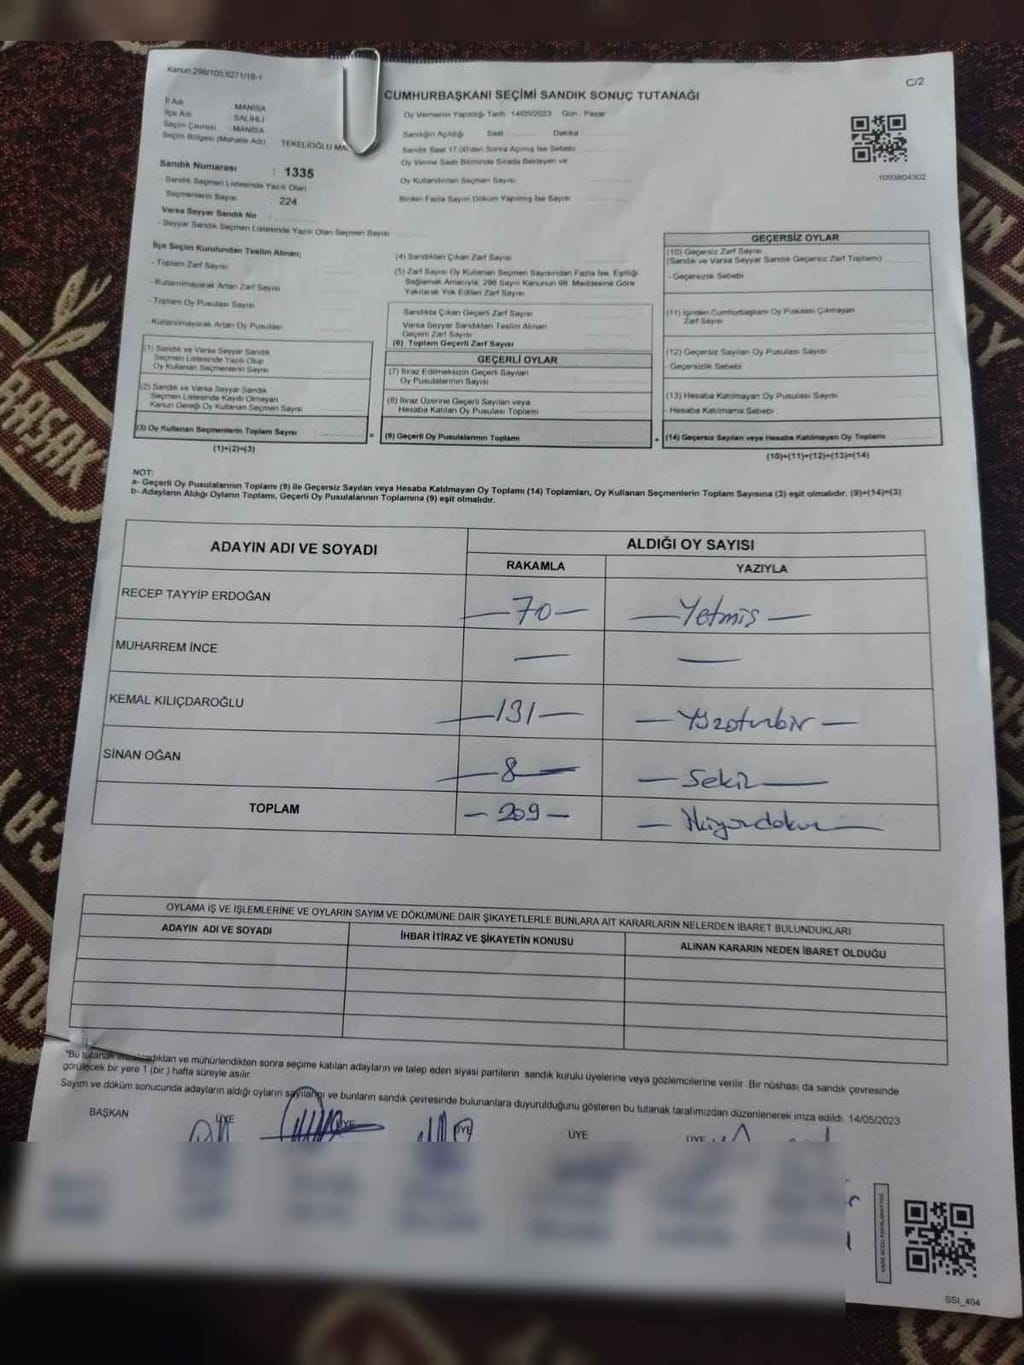 Kanun:298/105;6271/18-1
C/2
CUMHURBAŞKANI SEÇİMİ SANDIK SONUÇ TUTANAĞI
İl Adı : MANİSA
İlçe Adı : SALİHLİ
Seçim Çevresi : MANİSA
Seçim Bölgesi (Mahalle Adı) TEKELİOĞLU
Sandık Numarası : 1335
- Sandık Seçmen Listesinde Yazılı Olan
Seçmenlerin Sayısı : 224
Varsa Seyyar Sandık No :
- Seyyar Sandık Seçmen Listesinde Yazılı Olan Seçmen Sayısı
Oy Vermenin Yapıldığı Tarih 14/05/2023 Gün : Pazar
Sandığın Açıldığı Saat Dakika
Sandık Saat 17.00'den Sonra Açılmış İse Sebebi
Oy Verme Saati Bitiminde Sırada Bekleyen ve
Oy Kullandırılan Seçmen Sayısı
Birden Fazla Sayım Döküm Yapılmış İse Sayısı
1093804302
İlçe Seçim Kurulundan Teslim Alınan;
- Toplam Zarf Sayısı
- Kullanılmayarak Artan Zarf Sayısı
- Toplam Oy Pusulası Sayısı
- Kullanılmayarak Artan Oy Pusulası
(1) Sandık ve Varsa Seyyar Sandık
Seçmen Listesinde Yazılı Olup
Oy Kullanan Seçmenlerin Sayısı
(2) Sandık ve Varsa Seyyar Sandık
Seçmen Listesinde Kayıtlı Olmayan
Kanun Gereği Oy Kullanan Seçmen Sayısı
(3) Oy Kullanan Seçmenlerin Toplam Sayısı
(1)+(2)=(3)
=
(4) Sandıktan Çıkan Zarf Sayısı
(5) Zarf Sayısı Oy Kullanan Seçmen Sayısından Fazla İse, Eşitliği
Sağlamak Amacıyla, 298 Sayılı Kanunun 98. Maddesine Göre
Yakılarak Yok Edilen Zarf Sayısı
Sandıkta Çıkan Geçerli Zarf Sayısı
Varsa Seyyar Sandıktan Teslim Alınan
Geçerli Zarf Sayısı
(6) Toplam Geçerli Zarf Sayısı
GEÇERLİ OYLAR
(7) İtiraz Edilmeksizin Geçerli Sayılan
Oy Pusulalarının Sayısı
(8) İtiraz Üzerine Geçerli Sayılan veya
Hesaba Katılan Oy Pusulası Toplamı
(9) Geçerli Oy Pusulalarının Toplamı
+
GEÇERSİZ OYLAR
(10) Geçersiz Zarf Sayısı
(Sandık ve Varsa Seyyar Sandık Geçersiz Zarf Toplamı)
- Geçersizlik Sebebi
(11) İçinden Cumhurbaşkanı Oy Pusulası Çıkmayan
Zarf Sayısı
(12) Geçersiz Sayılan Oy Pusulası Sayısı
Geçersizlik Sebebi
(13) Hesaba Katılmayan Oy Pusulası Sayısı
- Hesaba Katılmama Sebebi
(14) Geçersiz Sayılan veya Hesaba Katılmayan Oy Toplamı
(10)+(11)+(12)+(13)=(14)
NOT:
a- Geçerli Oy Pusulalarının Toplamı (9) ile Geçersiz Sayılan veya Hesaba Katılmayan Oy Toplamı (14) Toplamları, Oy Kullanan Seçmenlerin Toplam Sayısına (3) eşit olmalıdır. (9)+(14)=(3)
b- Adayların Aldığı Oyların Toplamı, Geçerli Oy Pusulalarının Toplamına (9) eşit olmalıdır.
ADAYIN ADI VE SOYADI
ALDIĞI OY SAYISI
RAKAMLA YAZIYLA
RECEP TAYYİP ERDOĞAN — 70 — — Yetmiş —
MUHARREM İNCE — —
KEMAL KILIÇDAROĞLU — 131 — — Yüzotuzbir —
SİNAN OĞAN — 8 — — Sekiz —
TOPLAM — 209 — — İkiyüzdokuz —
OYLAMA İŞ VE İŞLEMLERİNE VE OYLARIN SAYIM VE DÖKÜMÜNE DAİR ŞİKAYETLERLE BUNLARA AİT KARARLARIN NELERDEN İBARET BULUNDUKLARI
ADAYIN ADI VE SOYADI İHBAR İTİRAZ VE ŞİKAYETİN KONUSU ALINAN KARARIN NEDEN İBARET OLDUĞU
"Bu tutanak imzalandıktan ve mühürlendikten sonra seçime katılan adayların ve talep eden siyasi partilerin sandık kurulu üyelerine veya gözlemcilerine verilir. Bir nüshası da sandık çevresinde
görülecek bir yere 1 (bir) hafta süreyle asılır.
Sayım ve döküm sonucunda adayların aldığı oyların sayılarını ve bunların sandık çevresinde bulunanlara duyurulduğunu gösteren bu tutanak tarafımızdan düzenlenerek imza edildi. 14/05/2023
BAŞKAN ÜYE ÜYE ÜYE ÜYE ÜYE
SSI_404